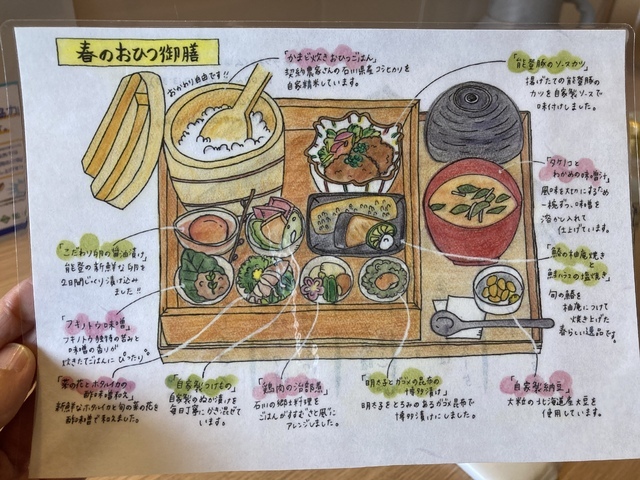 春のおひつ御膳
おかわり自由です!!
「かまど炊きおひつごはん」
契約農家さんの石川県産コシヒカリを
自家精米しています。
「能登豚のソースカツ」
揚げたての能登豚の
カツを自家製ソースで
味付けしました。
「タケノコと
わかめの味噌汁」
風味を大切にするため
一椀ずつ、味噌を
溶かし入れて
仕上げています。
「鰆の柚庵焼きと
鮭ハラスの塩焼き」
旬の鰆を
柚庵につけて
炊き上げた
春らしい逸品です。
「こだわり卵の醤油漬け」
能登の新鮮な卵を
2日間じっくり漬け込み
ました!!
「フキノトウ味噌」
フキノトウ独特の苦みと
味噌の香りが
炊きたてごはんに ぴったり。
「菜の花とホタルイカの
酢味噌和え」
新鮮なホタルイカと旬の菜の花を
酢味噌で和えました。
「自家製つけもの」
自家製のぬか漬けを
毎日丁寧にかき混ぜて
います。
「鶏肉の治部煮」
石川の郷土料理を
ごはんがすすむ"さと風"に
アレンジしました。
「明太子とガゴメ昆布の
博多漬け」
明太子をとろみのあるガゴメ昆布で
博多漬けにしました。
「自家製納豆」
大粒の北海道産大豆を
使用しています。